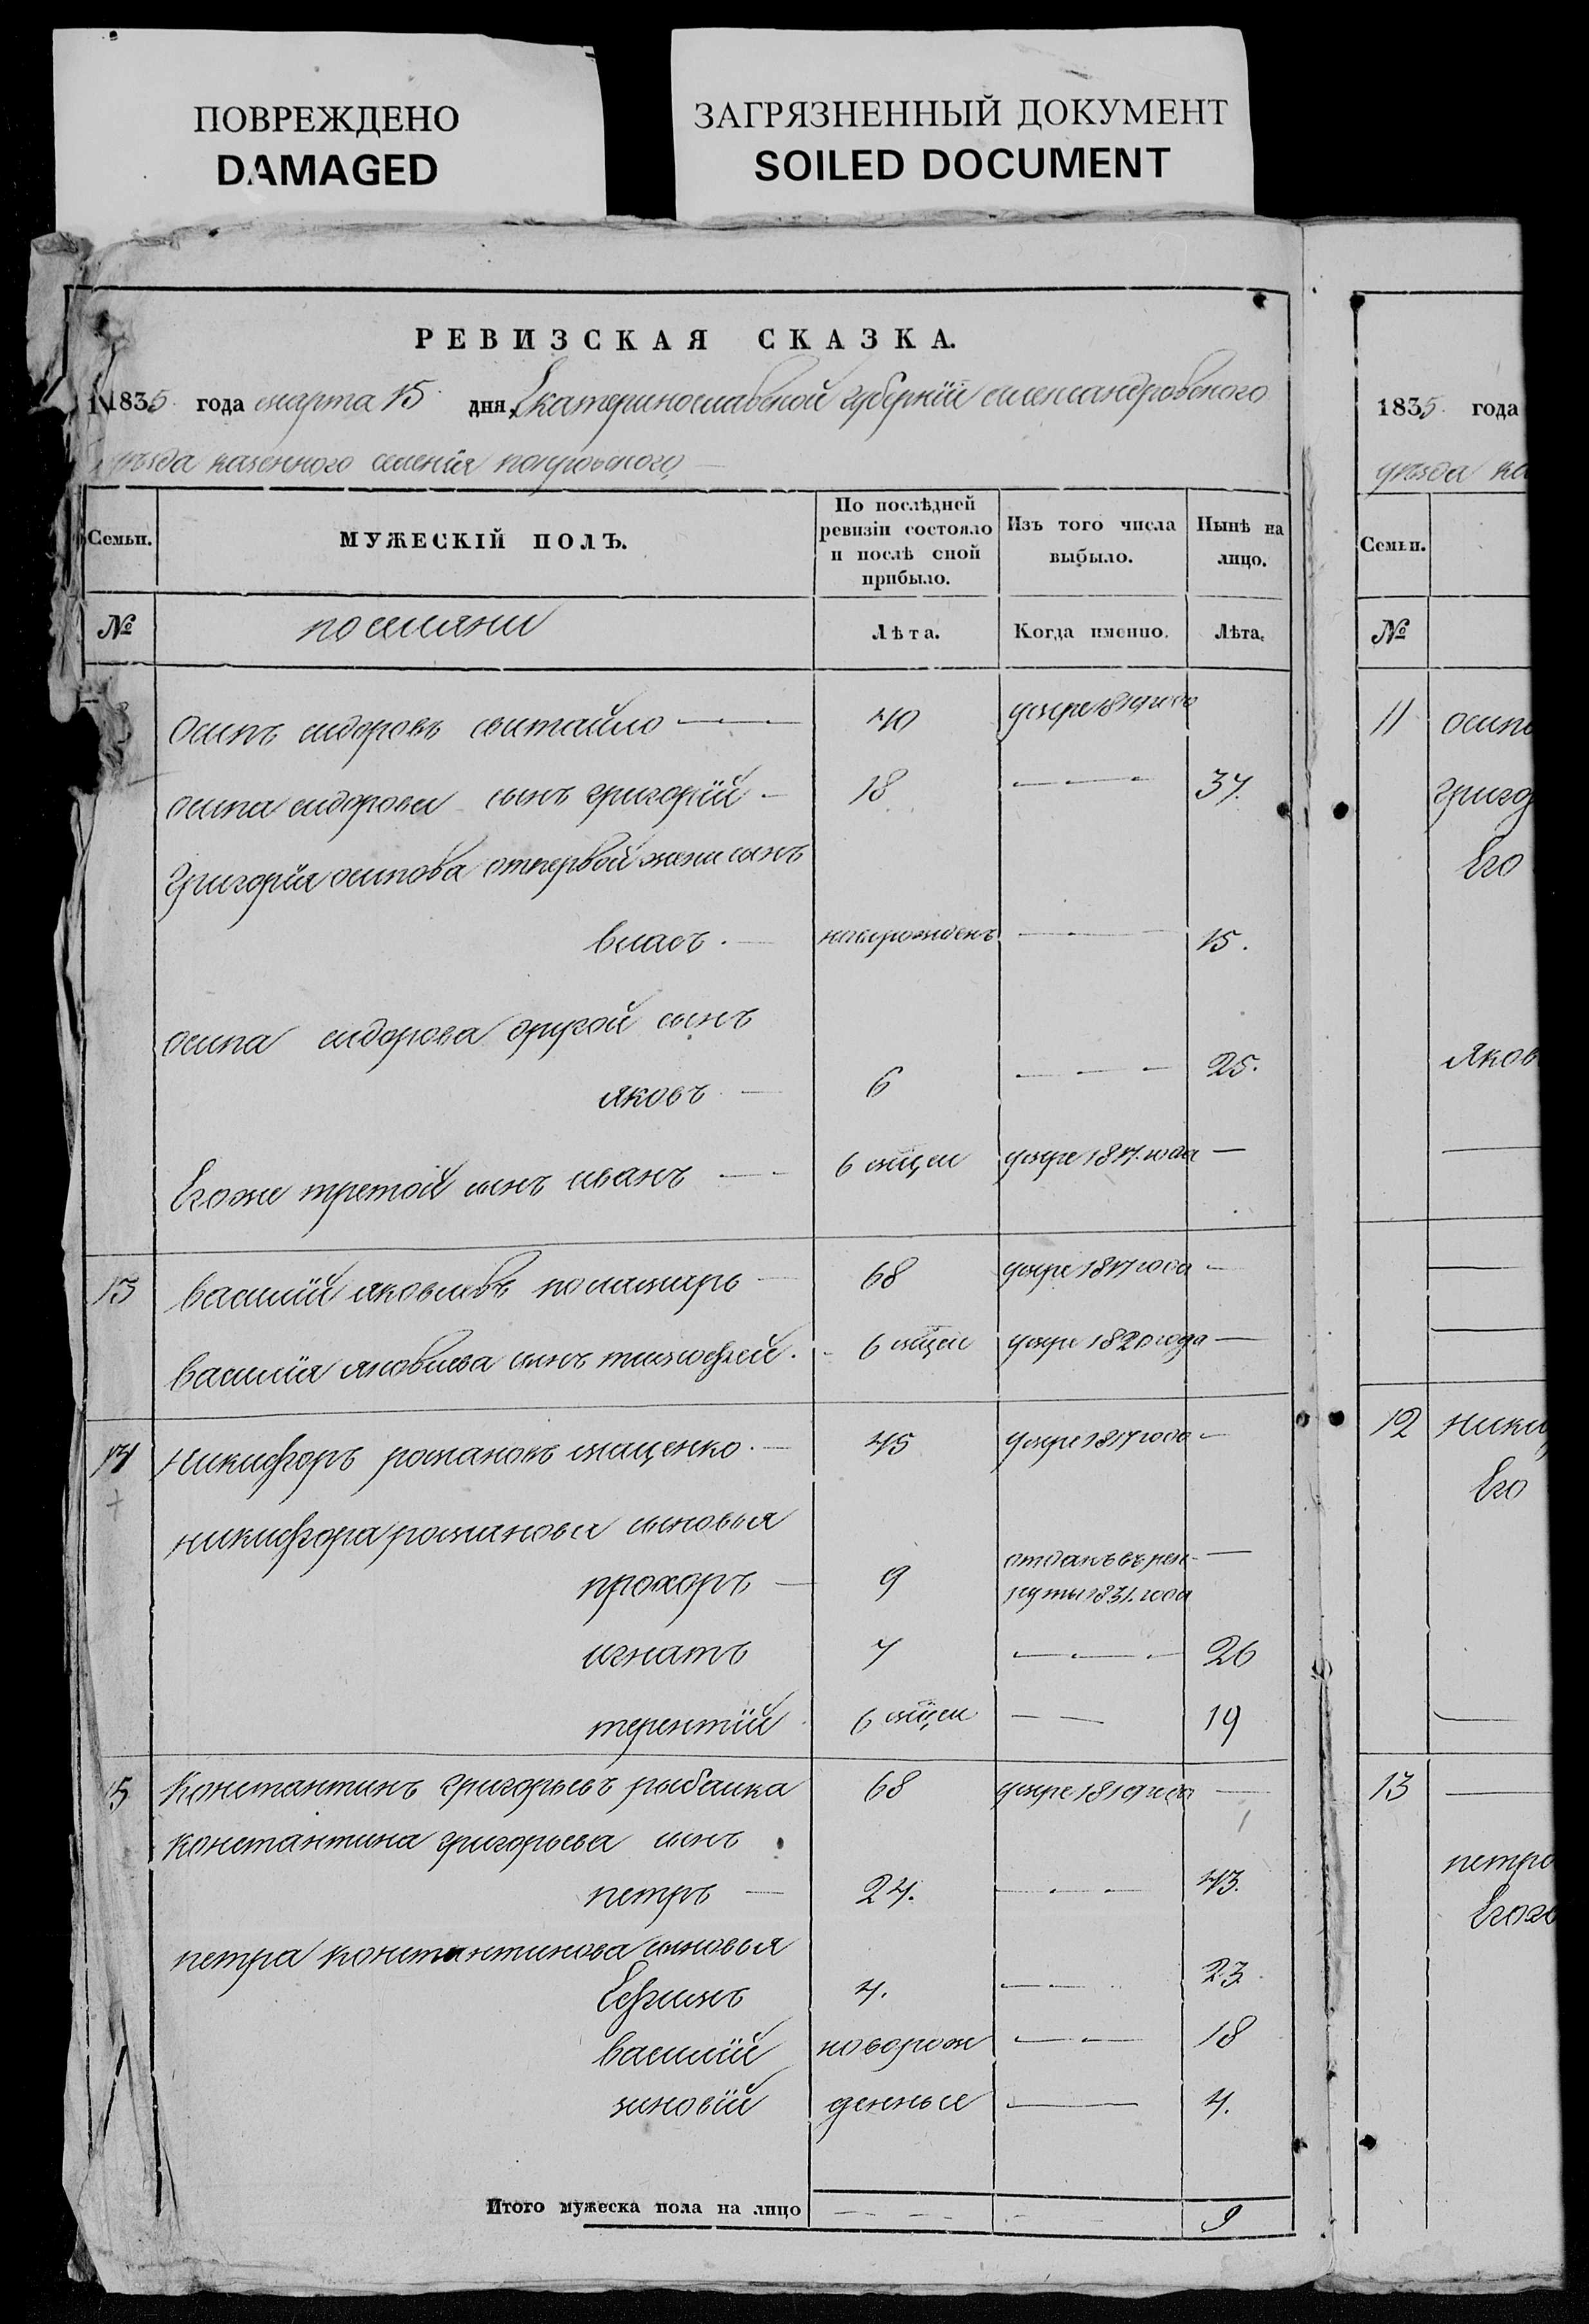 ПОВРЕЖДЕНО
DAMAGED
ЗАГРЯЗНЕННЫЙ ДОКУМЕНТ
SOILED DOCUMENT
РЕВИЗСКАЯ СКАЗКА.
1835 года марта 15 дня, Екатеринославской губернїи александровского
уѣзда казенного селенїя покровского
Семьи.
МУЖЕСКІЙ ПОЛЪ.
По послѣдней ревизіи состояло и послѣ оной прибыло.
Изъ того числа выбыло.
Нынѣ на лицо.
№
поселяни
Лѣта.
Когда именно.
Лѣта.
осипъ сидоровъ 40 умре 1819 года
осипа сидорова сынъ григорїй 18 37.
Григорїя осипова отпервой жени сынъ
власъ. новорожденъ 15.
осипа сидорова другой сынъ
яковъ 6 25.
Егоже третой сынъ иванъ 6 мѣцеи умре 1817. года
13 василїй яковлевъ 68 умре 1817 года
василїя яковлева сынъ тимофей. 6 мѣцеи умре 1820 года
14 никифоръ романовъ маценко 45 умре 1817 года
никифора романова сыновья
прохоръ 9 отданъ въ рек-
руты 1831. года
игнатъ 7 26
терентїй 6 мѣцеи 19
15 Константинъ григорьевъ рыбалка 68 умре 1819 года
константина григорьева сынъ
петръ 24. 43.
петра константинова сыновья
Ефимъ 4. 23
василїй новорож 18
зиновїй денные 4.
Итого мужеска пола на лицо 9
1835. года
уѣзда ка
Семьи.
№
11 осипа
Григо
Его
Яков
12 Ники
Его
13
петро
Егого